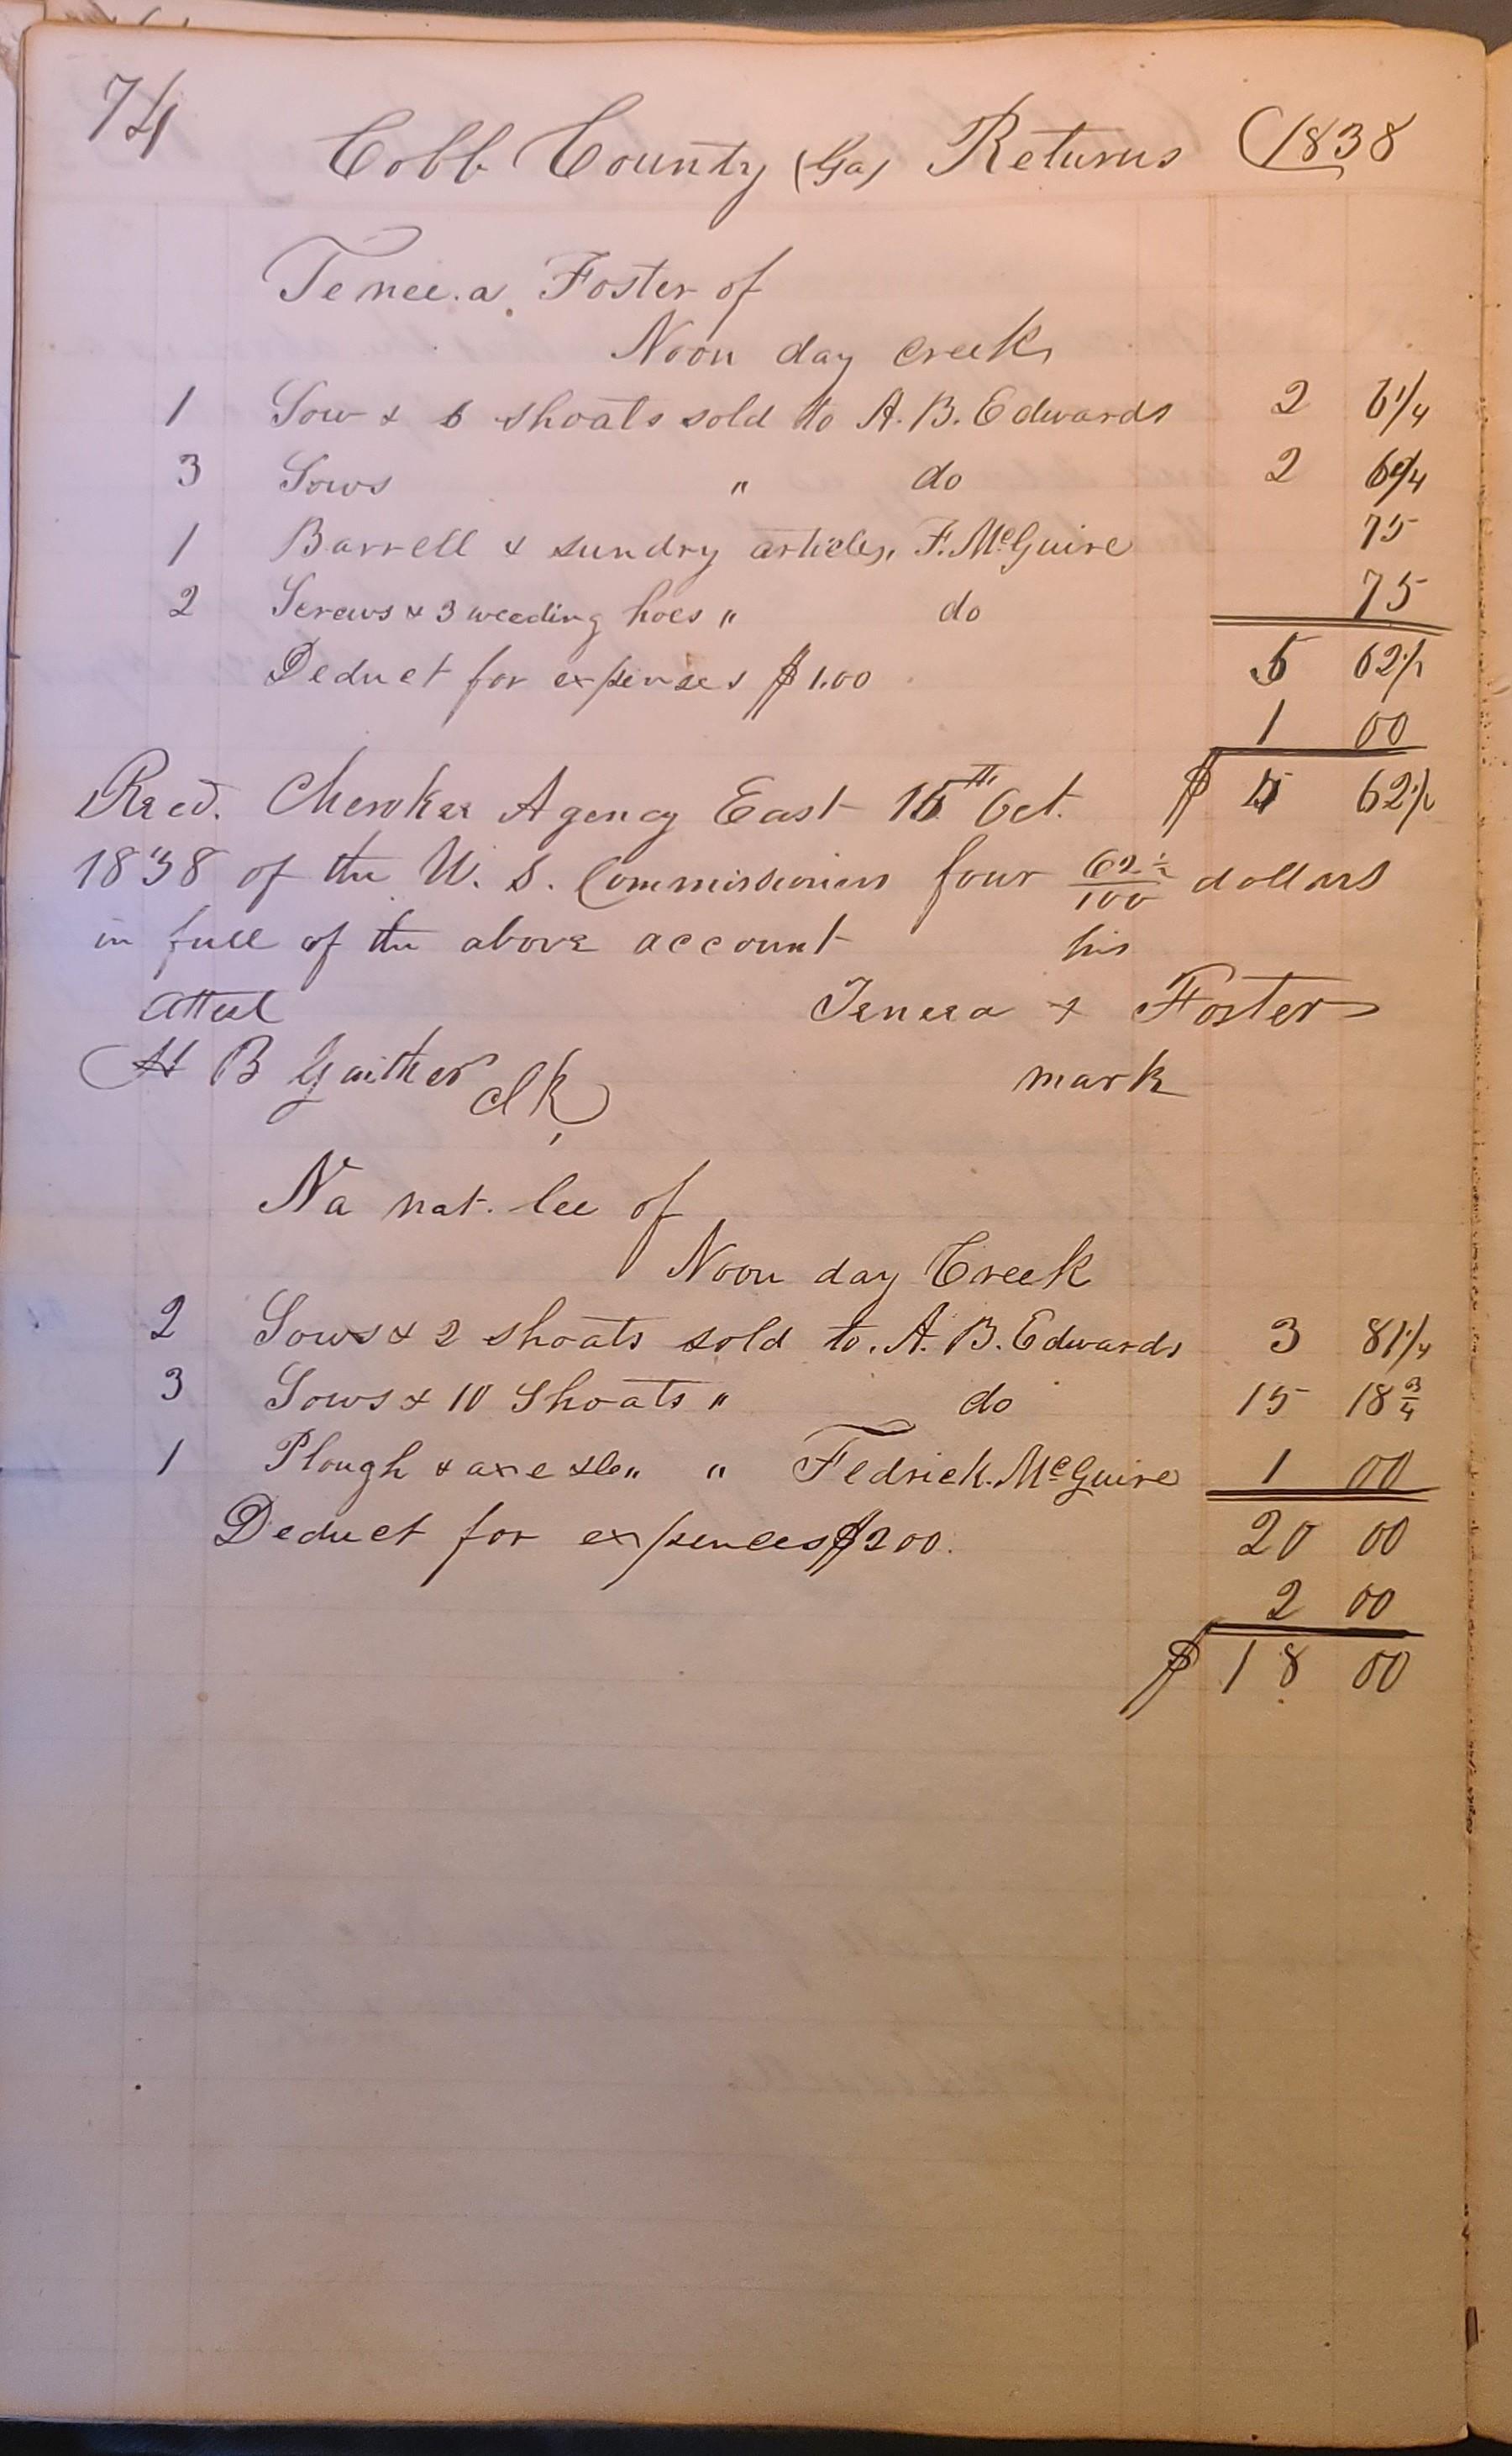 74 Cobb County (Ga) Returns 1838
Tenee.a. Foster of
Noon day creek
1 Sow & 6 shoats sold to A. B. Edwards 2 6 1/4
3 Sows " do 2 6 1/4
1 Barrell & sundry articles, F. McGuire 75
2 Screws & 3 weeding hoes " do 75
Deduct for expenses $1.00 5 62 1/2
1 00
Recd. Cherokee Agency East 15th Oct. $ 4 62 1/2
1838 of the U. S. Commissioners four 62 1/2/100 dollars
in full of the above account his
Attest Teneea x Foster
H B Gaither Clk, mark
Na nat. lee of
Noon day Creek
2 Sows & 2 shoats sold to. A. B. Edwards 3 81 1/4
3 Sows & 10 Shoats " do 15 18 3/4
1 Plough & axe &c " " Fedrick. McGuire 1 00
Deduct for expences $2 00. 20 00
2 00
$ 18 00